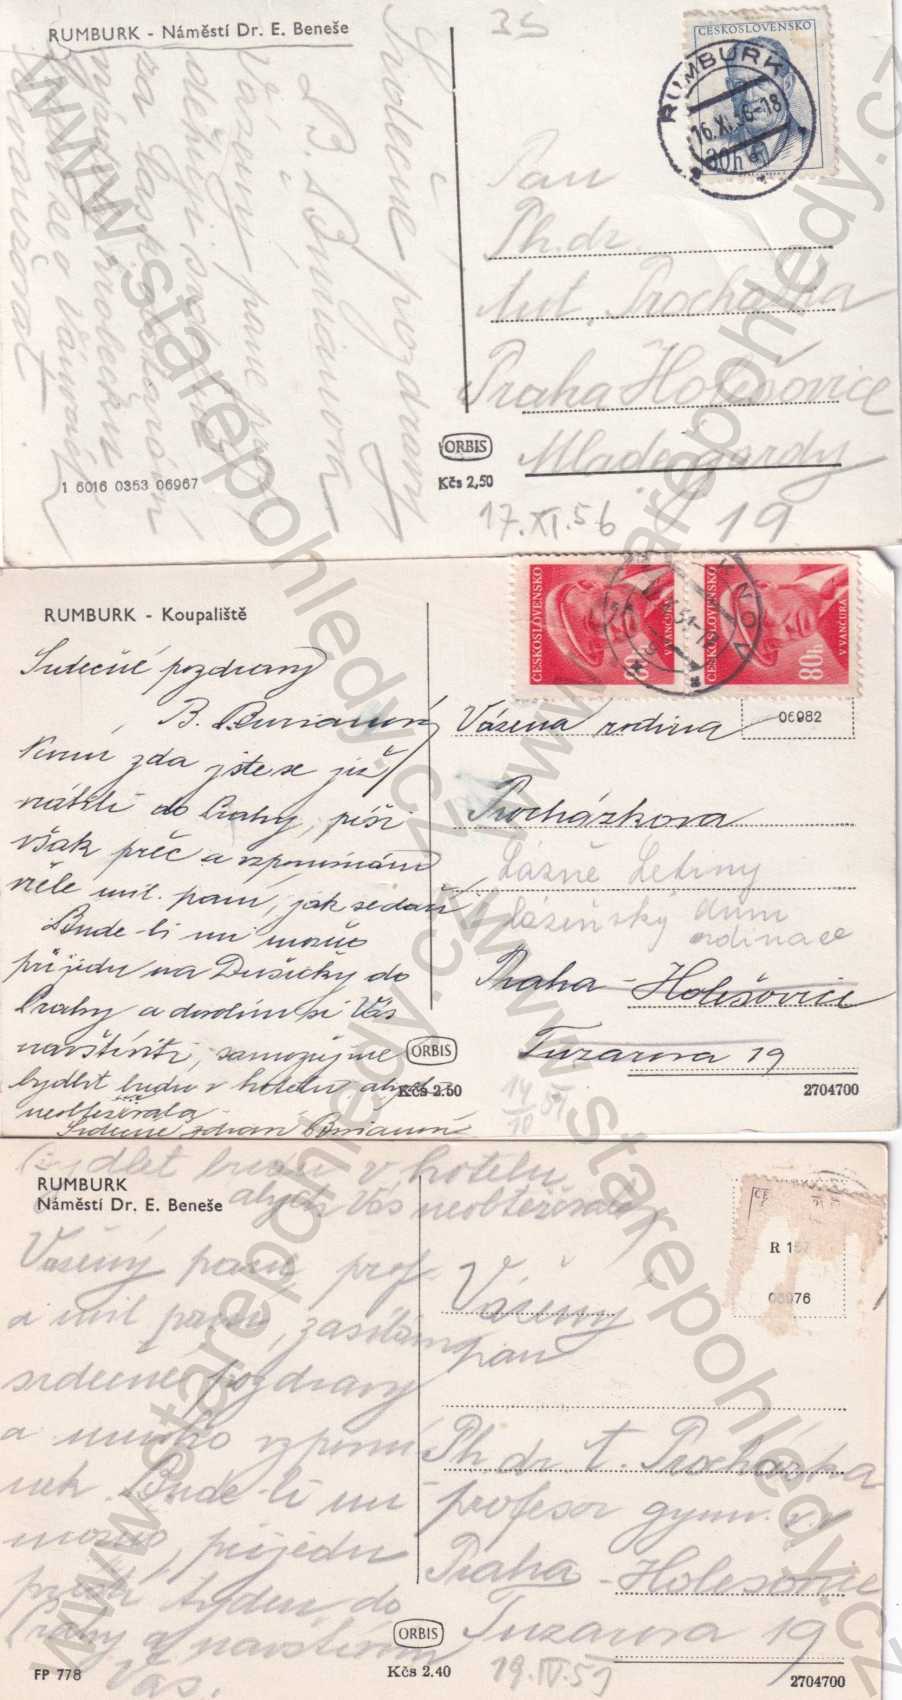 RUMBURK - Náměstí Dr. E. Beneše
35
ČESKOSLOVENSKO
RUMBURK
16.XI.56-18
30h
Srdečné pozdravy
B. Burianová
Vážený pane
Pan
Ph.dr.
Ant. Procházka
Praha Holešovice
Mládežgardy
19
17.XI.56
ORBIS
Kčs 2,50
1 6016 0353 06967
RUMBURK - Koupaliště
ČESKOSLOVENSKO
V VANČURA
ČESKOSLOVENSKO
80h
V VANČURA
06982
Srdečné pozdravy
B. Burianová
Nevím zda jste se již
vrátili do Prahy, píši
však přec a vzpomínám
vřele mil. paní, jak se daří
Bude-li mi možno
přijedu na Dušičky do
Prahy a dovolím si Vás
navštíviti, samozřejmě
bydlet budu v hotelu abych
neobtěžovala
Srdečně zdraví Burianová
Vážená rodina
Procházkova
Lázně Letiny
Lázeňský dům
ordinace
Praha - Holešovice
Tuzarova 19
14/10 51
ORBIS
Kčs 2.50
2704700
bydlet budu v hotelu,
abych Vás neobtěžovala
RUMBURK
Náměstí Dr. E. Beneše
R 157
06976
Vážený pane prof.
a mil paní, zasílám
srdečné pozdravy
a mnoho vzpomí
nek. Bude-li mi
možno, přijedu
příští týden do
Prahy a navštívím
Vás.
Vážený
pan
Ph dr. A. Procházka
profesor gymn. v.v
Praha - Holešovice
Tuzarova 19
19.IV.51
ORBIS
FP 778
Kčs 2.40
2704700
www.starepohledy.cz
www.starepohledy.cz
www.starepohledy.cz
www.starepohledy.cz